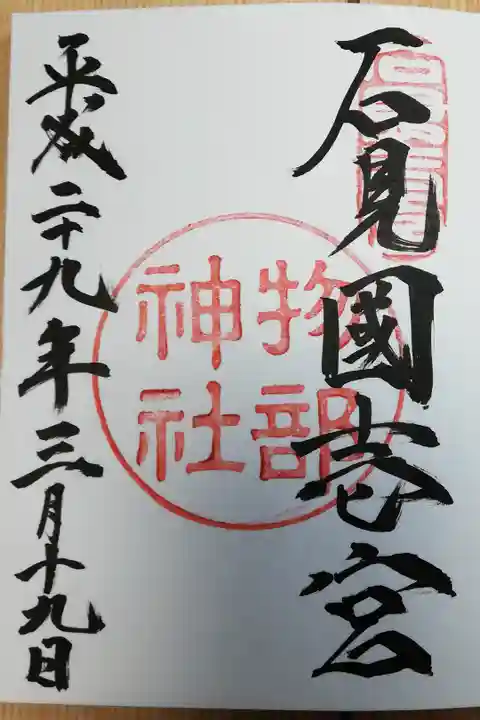 石見國壱宮
物部
神社
平成二十九年三月十九日